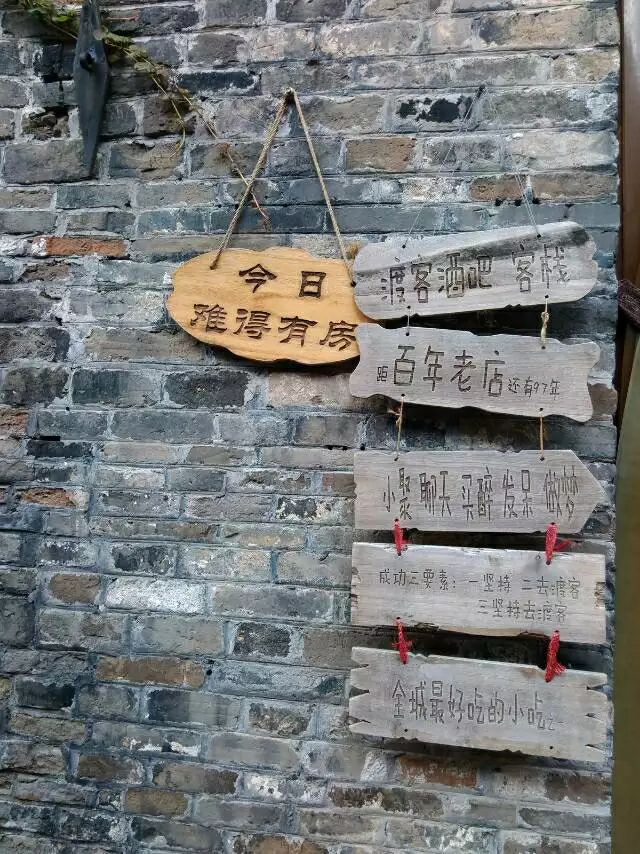 今日
难得有房
渡客酒吧 客栈
距百年老店还有97年
小聚 聊天 买醉 发呆 做梦
成功三要素：一坚持 二去渡客
三坚持去渡客
全城最好吃的小吃之一